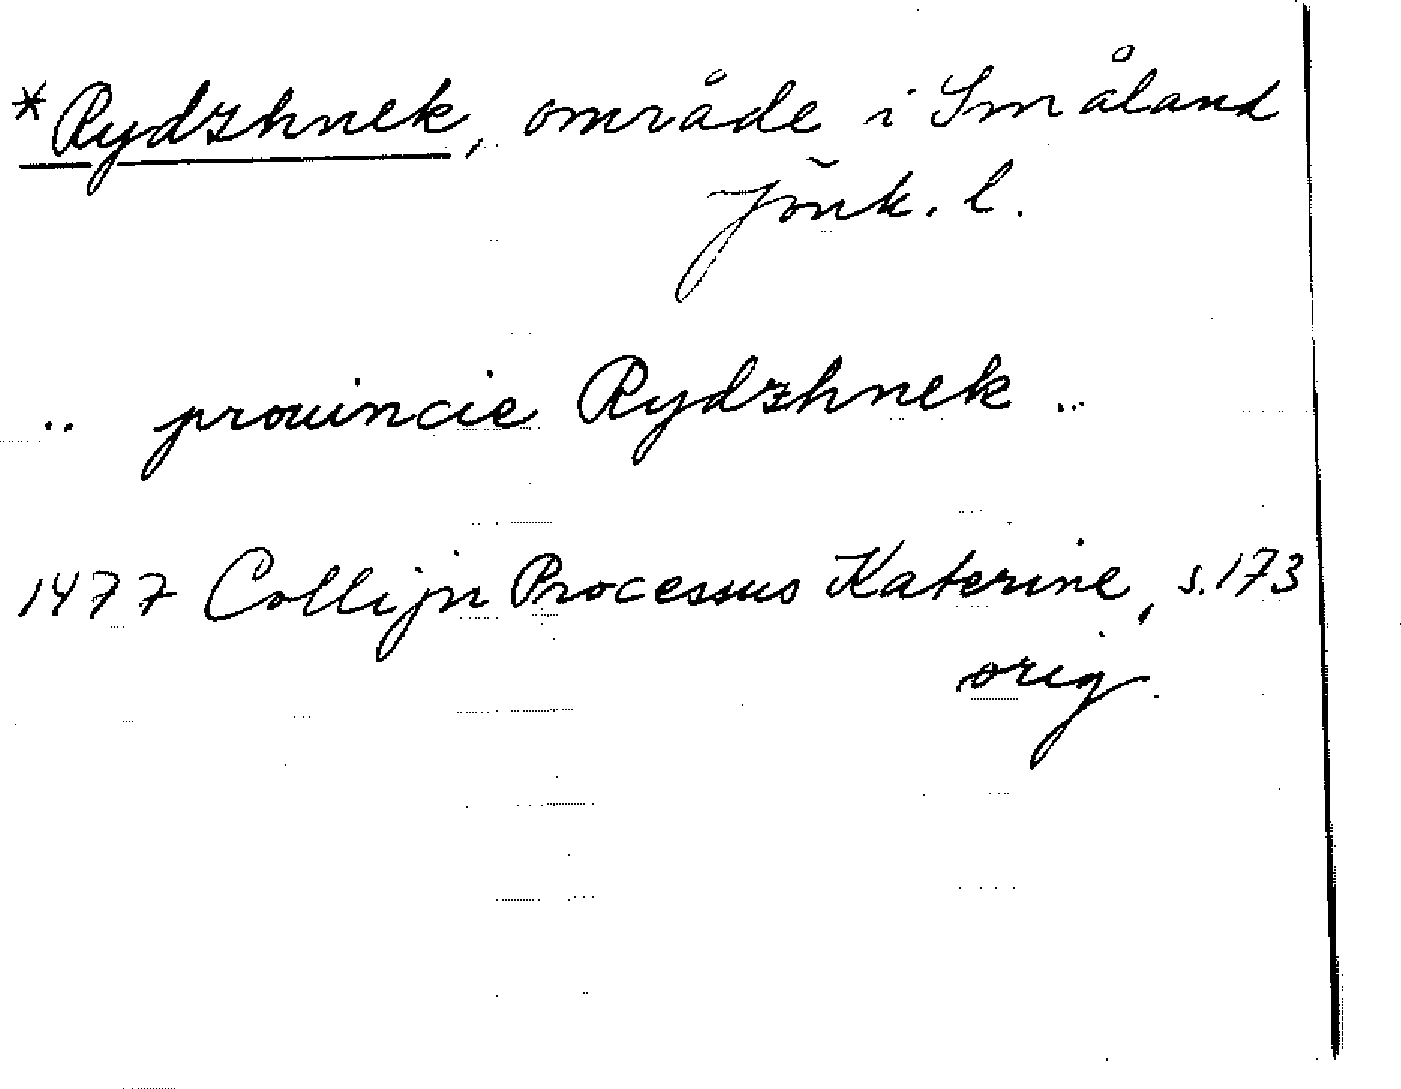 *Rydzhnek, område i Småland
Jönk. l.
.. prouincie Rydzhnek ..
1477 Collijn Processus Katerine, s. 173
orig.